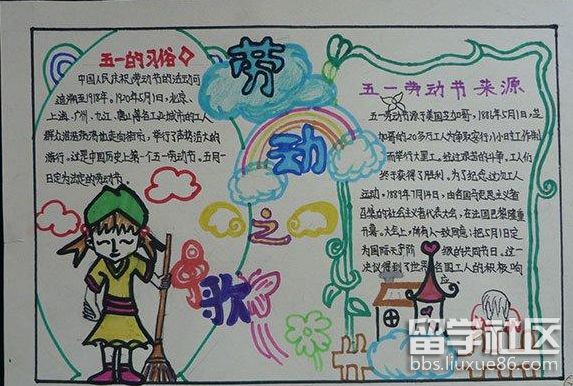 五一的习俗
中国人民庆祝劳动节的活动可
追溯至1918年。1920年5月1日,北京、
上海、广州、九江、唐山等各工业城市的工人
群众浩浩荡荡地走向街市、举行了声势浩大的
游行。这是中国历史上第一个五一劳动节。五月一
日定为法定的劳动节。
劳
动
之
歌
五一劳动节来源
五一劳动节源于美国芝加哥,1886年5月1日,芝
加哥的20多万工人为争取实行八小时工作制
而举行大罢工,经过艰苦的斗争,工人们
终于获得了胜利。为了纪念这次工人
运动,1889年7月14日,由各国马克思主义者
召集的社会主义者代表大会,在法国巴黎隆重
开幕。大会上,所有人一致同意:把5月1日定
为国际无产阶级的共同节日。这一
决议得到了世界各国工人的积极响
应
留学社区
bbs.liuxue86.com